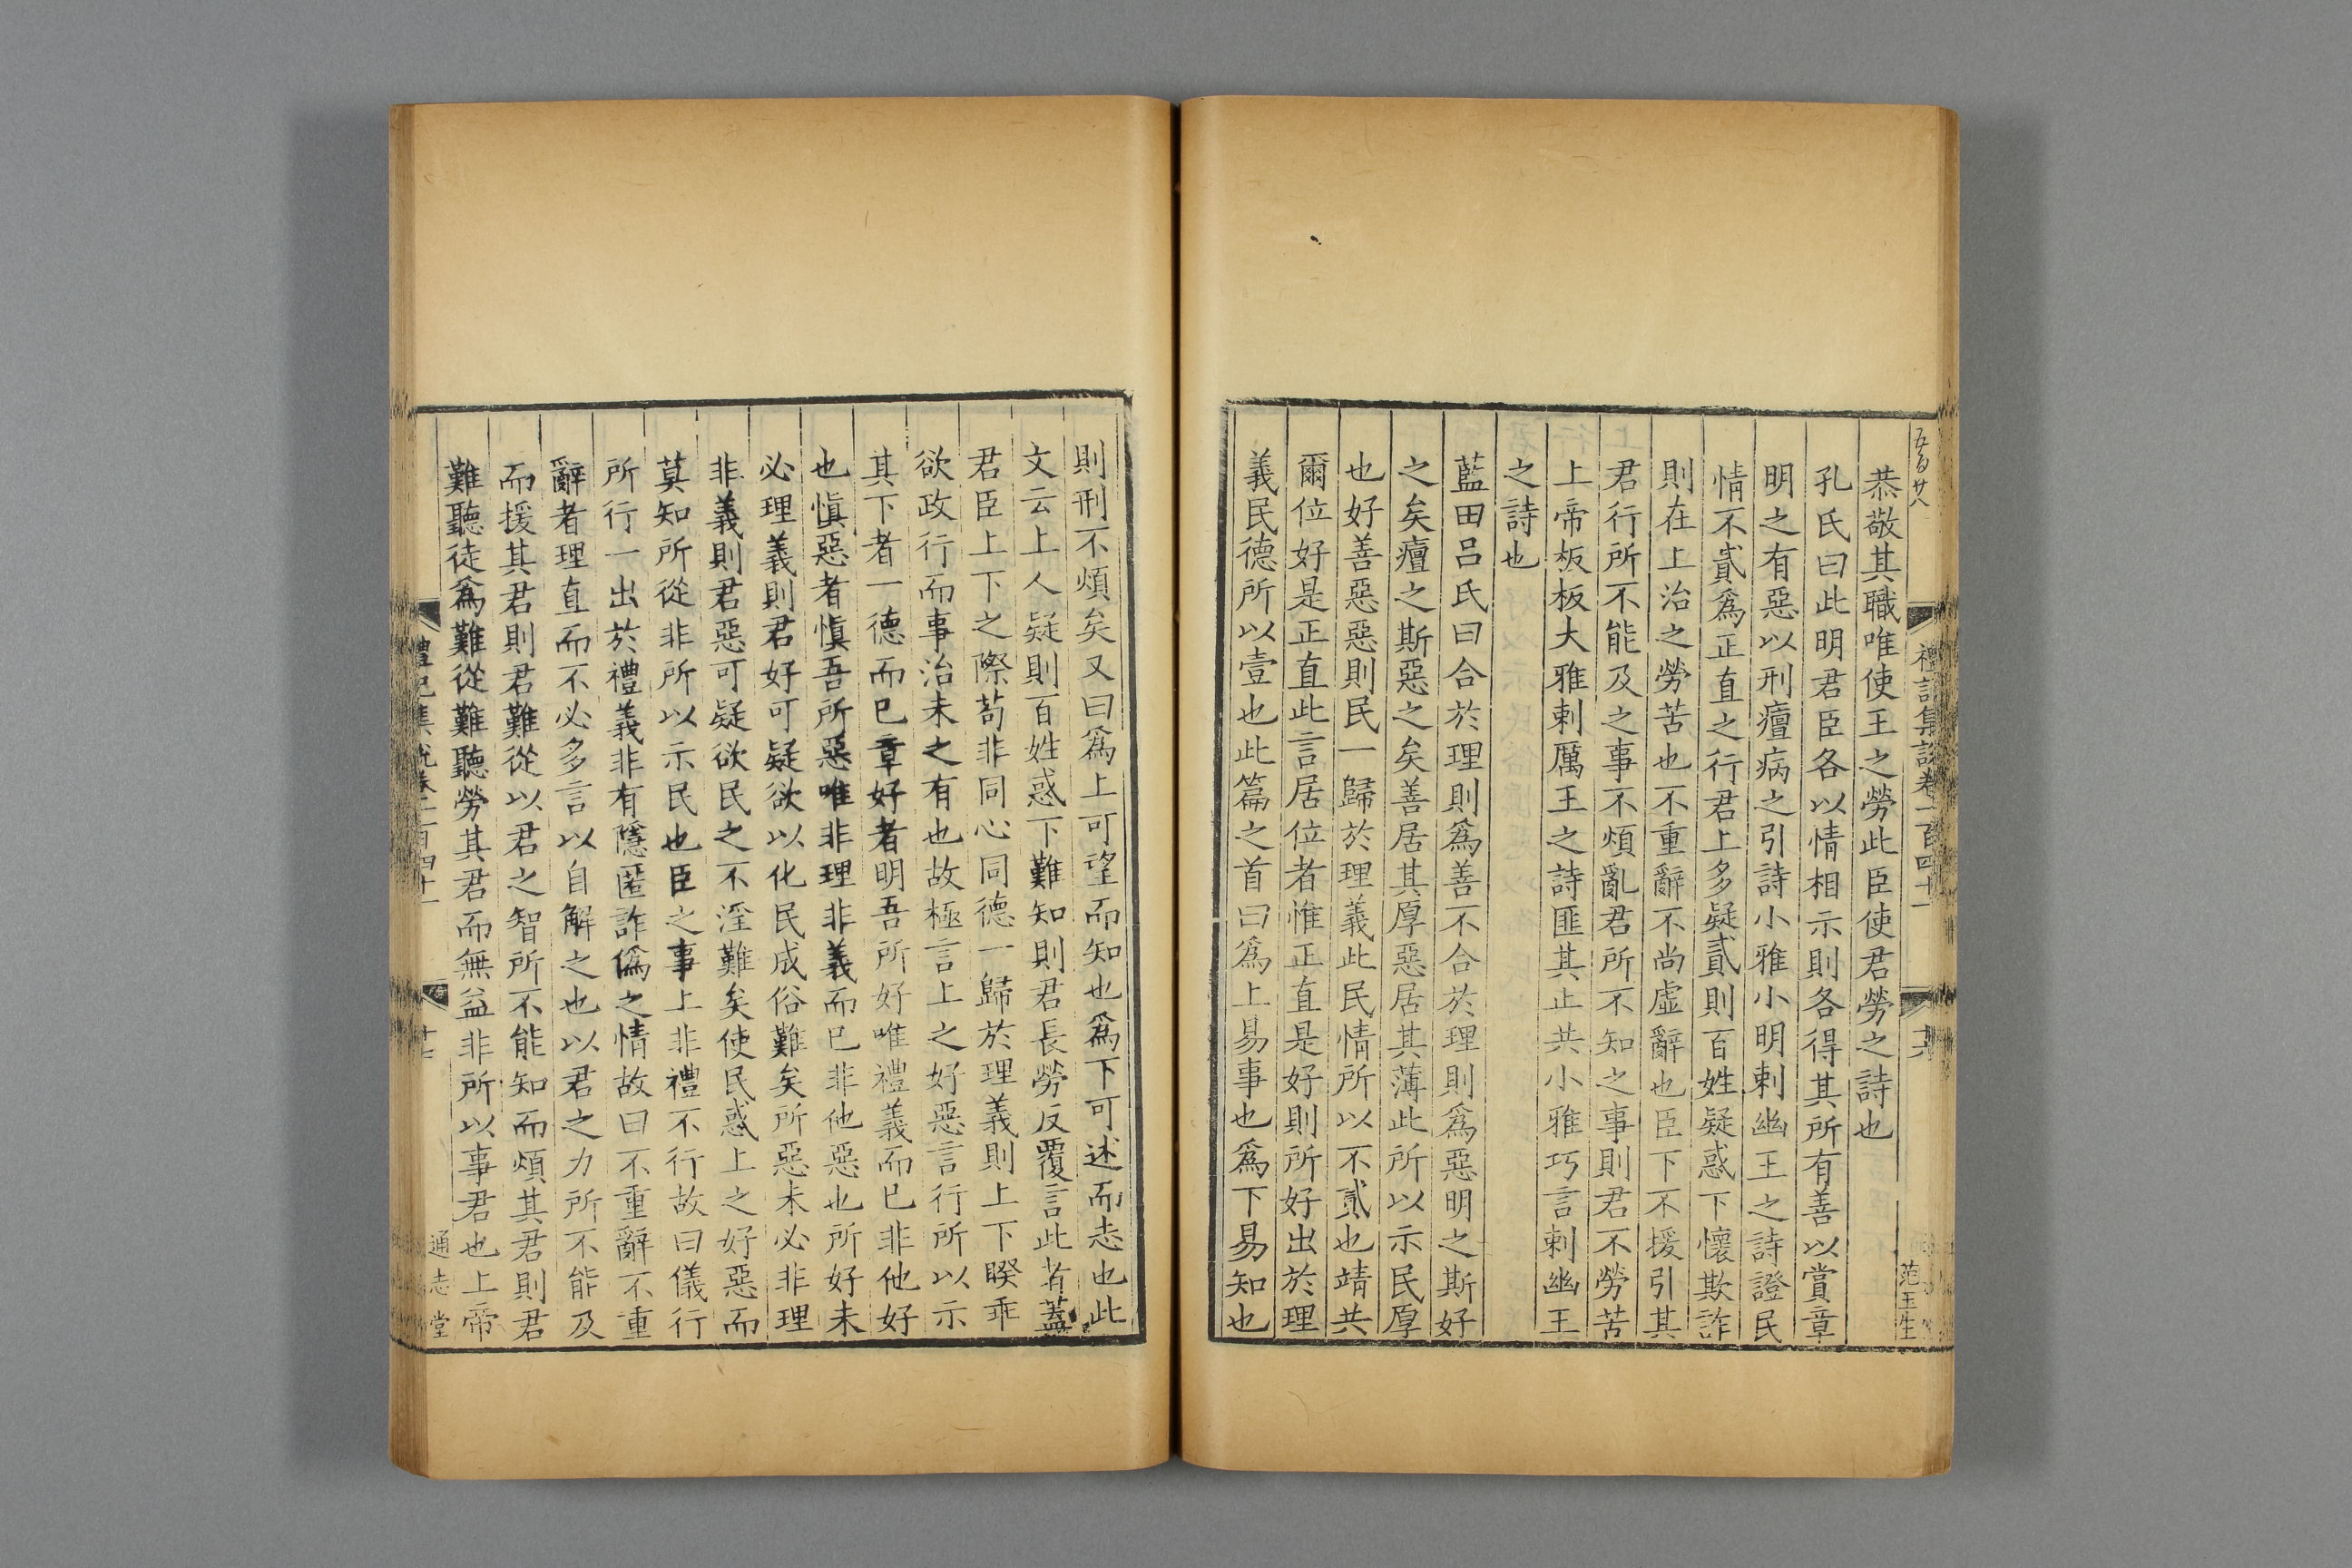 五百廿八
禮記集說卷一百四十一
十六
范玉生
恭敬其職唯使王之勞此臣使君勞之詩也
孔氏曰此明君臣各以情相示則各得其所有善以賞章
明之有惡以刑癉病之引詩小雅小明刺幽王之詩證民
情不貳爲正直之行君上多疑貳則百姓疑惑下懷欺詐
則在上治之勞苦也不重辭不尚虛辭也臣下不援引其
君行所不能及之事不煩亂君所不知之事則君不勞苦
上帝板板大雅刺厲王之詩匪其止共小雅巧言刺幽王
之詩也
藍田呂氏曰合於理則爲善不合於理則爲惡明之斯好
之矣癉之斯惡之矣善居其厚惡居其薄此所以示民厚
也好善惡惡則民一歸於理義此民情所以不貳也靖共
爾位好是正直此言居位者惟正直是好則所好出於理
義民德所以壹也此篇之首曰爲上易事也爲下易知也
則刑不煩矣又曰爲上可望而知也爲下可述而志也此
文云上人疑則百姓惑下難知則君長勞反覆言此者蓋
君臣上下之際苟非同心同德一歸於理義則上下睽乖
欲政行而事治未之有也故極言上之好惡言行所以示
其下者一德而已章好者明吾所好唯禮義而已非他好
也慎惡者慎吾所惡唯非理非義而已非他惡也所好未
必理義則君好可疑欲以化民成俗難矣所惡未必非理
非義則君惡可疑欲民之不淫難矣使民惑上之好惡而
莫知所從非所以示民也臣之事上非禮不行故曰儀行
所行一出於禮義非有隱匿詐僞之情故曰不重辭不重
辭者理直而不必多言以自解之也以君之力所不能及
而援其君則君難從以君之智所不能知而煩其君則君
難聽徒爲難從難聽勞其君而無益非所以事君也上帝
禮記集說卷一百四十一
十七
通志堂